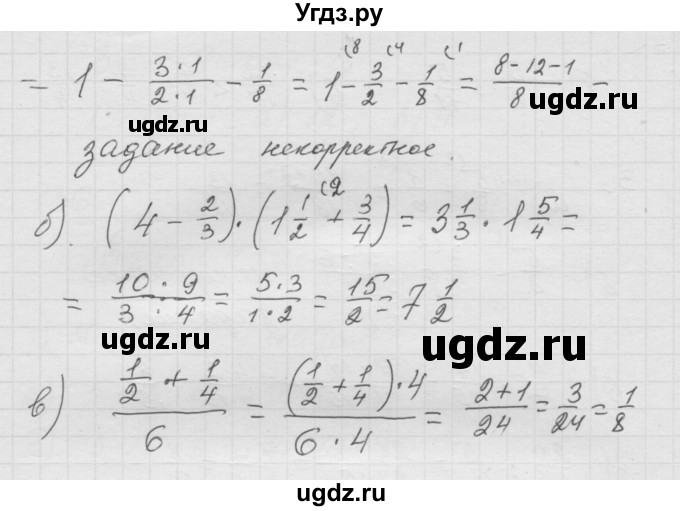 Угдз.ру
= 1 - 3·1/2·1 - 1/8 = 1 (8 - 3/2 (4 - 1/8 (1 = 8-12-1/8 -
ugdz.ru ugdz.ru
задание некорректное.
б). (4 - 2/3)·(1 1/2 (2 + 3/4) = 3 1/3 · 1 5/4 =
ugdz.ru
= 10·9/3·4 = 5·3/1·2 = 15/2 = 7 1/2
ugdz.ru ugdz.ru
в) (1/2 + 1/4)/6 = (1/2 + 1/4)·4/6·4 = 2+1/24 = 3/24 = 1/8
ugdz.ru
ugdz.ru